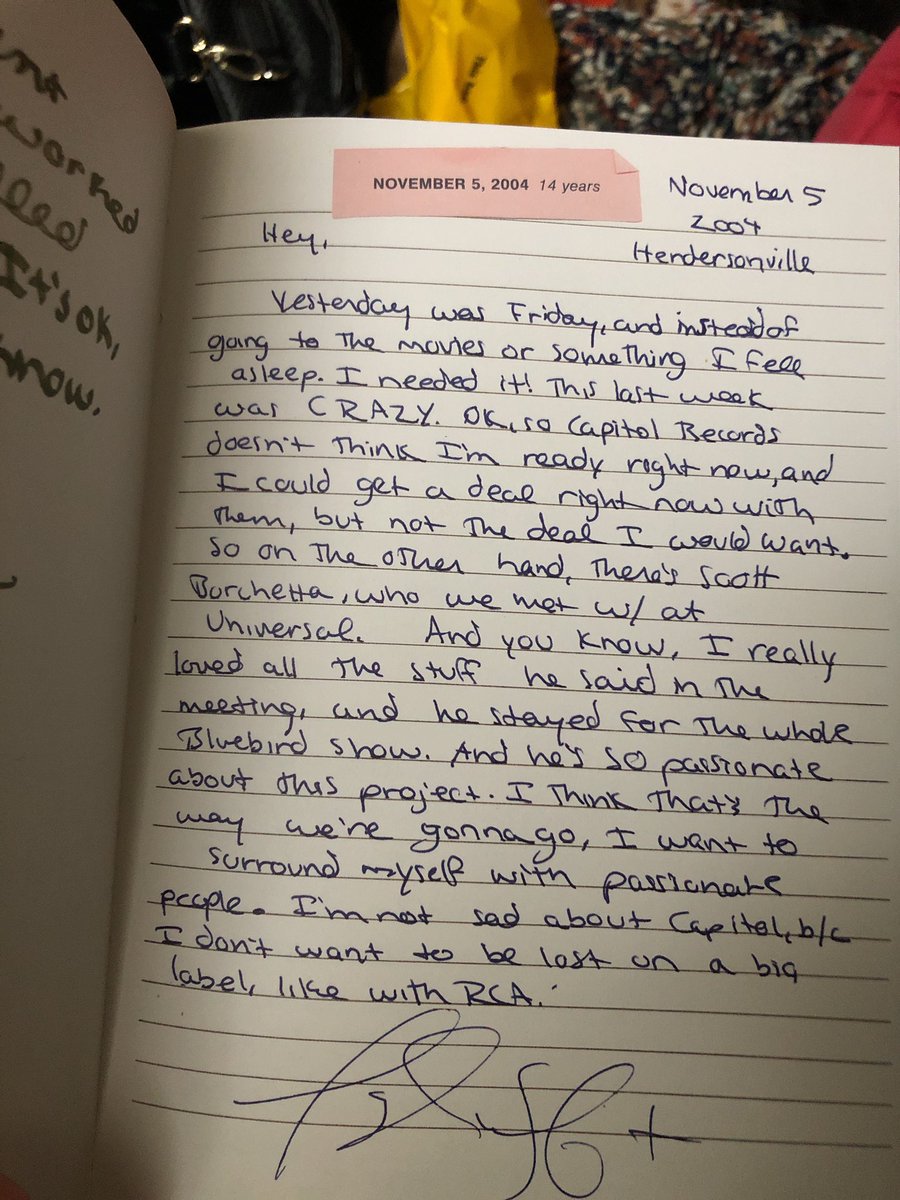 ent
worked
lled
It's ok,
know.
NOVEMBER 5, 2004 14 years
November 5
2004
Hendersonville
Hey,
Yesterday was Friday, and instead of
going to the movies or something I fell
asleep. I needed it! This last week
was CRAZY. OK, so Capitol Records
doesn't think I'm ready right now, and
I could get a deal right now with
them, but not the deal I would want.
So on the other hand, there's Scott
Borchetta, who we met w/ at
Universal. And you know, I really
loved all the stuff he said in the
meeting, and he stayed for the whole
Bluebird show. And he's so passionate
about this project. I think that's the
way we're gonna go, I want to
surround myself with passionate
people. I'm not sad about Capitol, b/c
I don't want to be lost on a big
label, like with RCA.